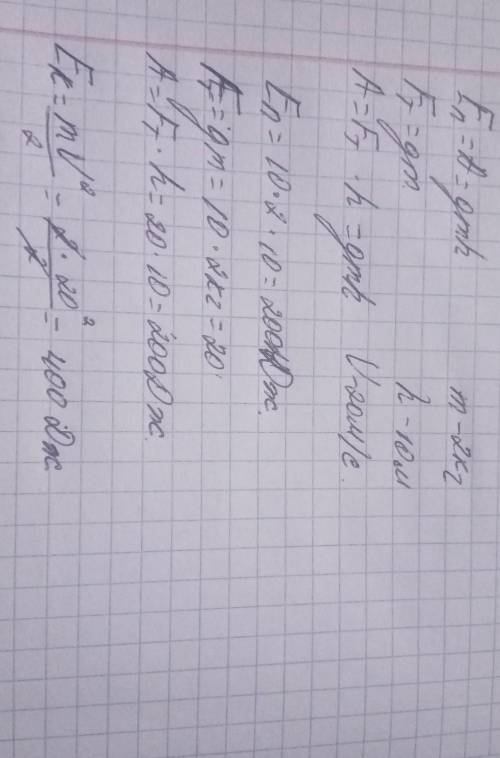 Eп = A = gmh m - 2кг
Fт = gm h - 10м
A = Fт · h = gmh V - 20м/с
Eп = 10 · 2 · 10 = 200Дж.
Fт = gm = 10 · 2кг = 20
A = Fт · h = 20 · 10 = 200Дж.
Eк = mV²/2 = 2 · 20²/2 = 400Дж.